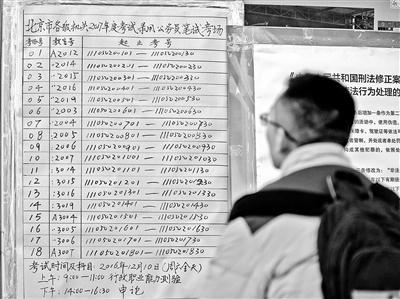 北京市各级机关2017年度考试录用公务员笔试考场
考场号 教室号 起止考号
01 A2012 11105020101 — 11105020130
02 ·2014 11105020201 — 11105020230
03 ·2015 11105020301 — 11105020330
04 ·2016 11105020401 — 11105020430
05 ·2019 11105020501 — 11105020530
06 ·2003 11105020601 — 11105020630
07 ·2004 11105020701 — 11105020730
08 ·2005 11105020801 — 11105020830
09 ·2006 11105020901 — 11105020930
10 ·2007 11105021001 — 11105021030
11 ·3014 11105021101 — 11105021130
12 ·3015 11105021201 — 11105021230
13 ·3016 11105021301 — 11105021330
14 ·3019 11105021401 — 11105021430
15 A3004 11105021501 — 11105021530
16 ·3005 11105021601 — 11105021630
17 ·3006 11105021701 — 11105021730
18 A3007 11105021801 — 11105021830
考试时间及科目: 2016年12月10日(周六全天)
上午: 9:00—11:00 行政职业能力测验
下午: 14:00—16:30 申论
民共和国刑法修正案
法行为处理的